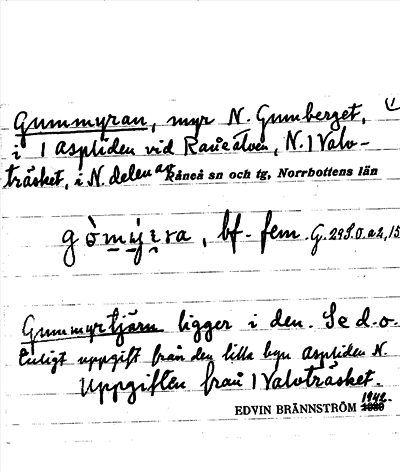 Gummyran, myr N. Gumberget,
i 1 Aspliden vid Råneälven, N. 1 Valv-
träsket, i N. delen av Råneå sn och tg, Norrbottens län
bf. fem. G. 29 S. O. a 2, 15
Gummyrtjärn ligger i den. Se d.o.
Enligt uppgift från den lilla byn Aspliden N.
Uppgiften från 1 Valvträsket.
EDVIN BRÄNNSTRÖM 1942